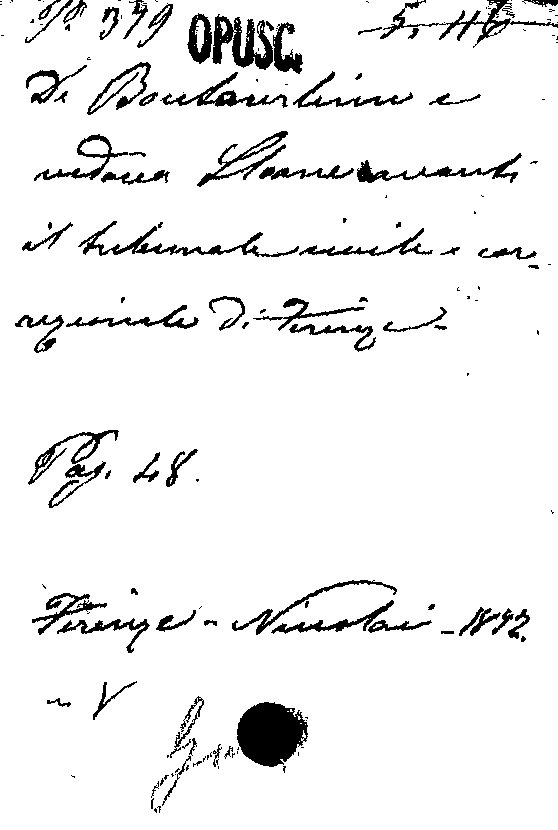 P. 379 OPUSC. 5. 116
De Boutourlinn e
vedova Sloane avanti
il tribunale civile e cor-
rezionale di Firenze.
Pag. 48.
Firenze - Niccolai - 1872.